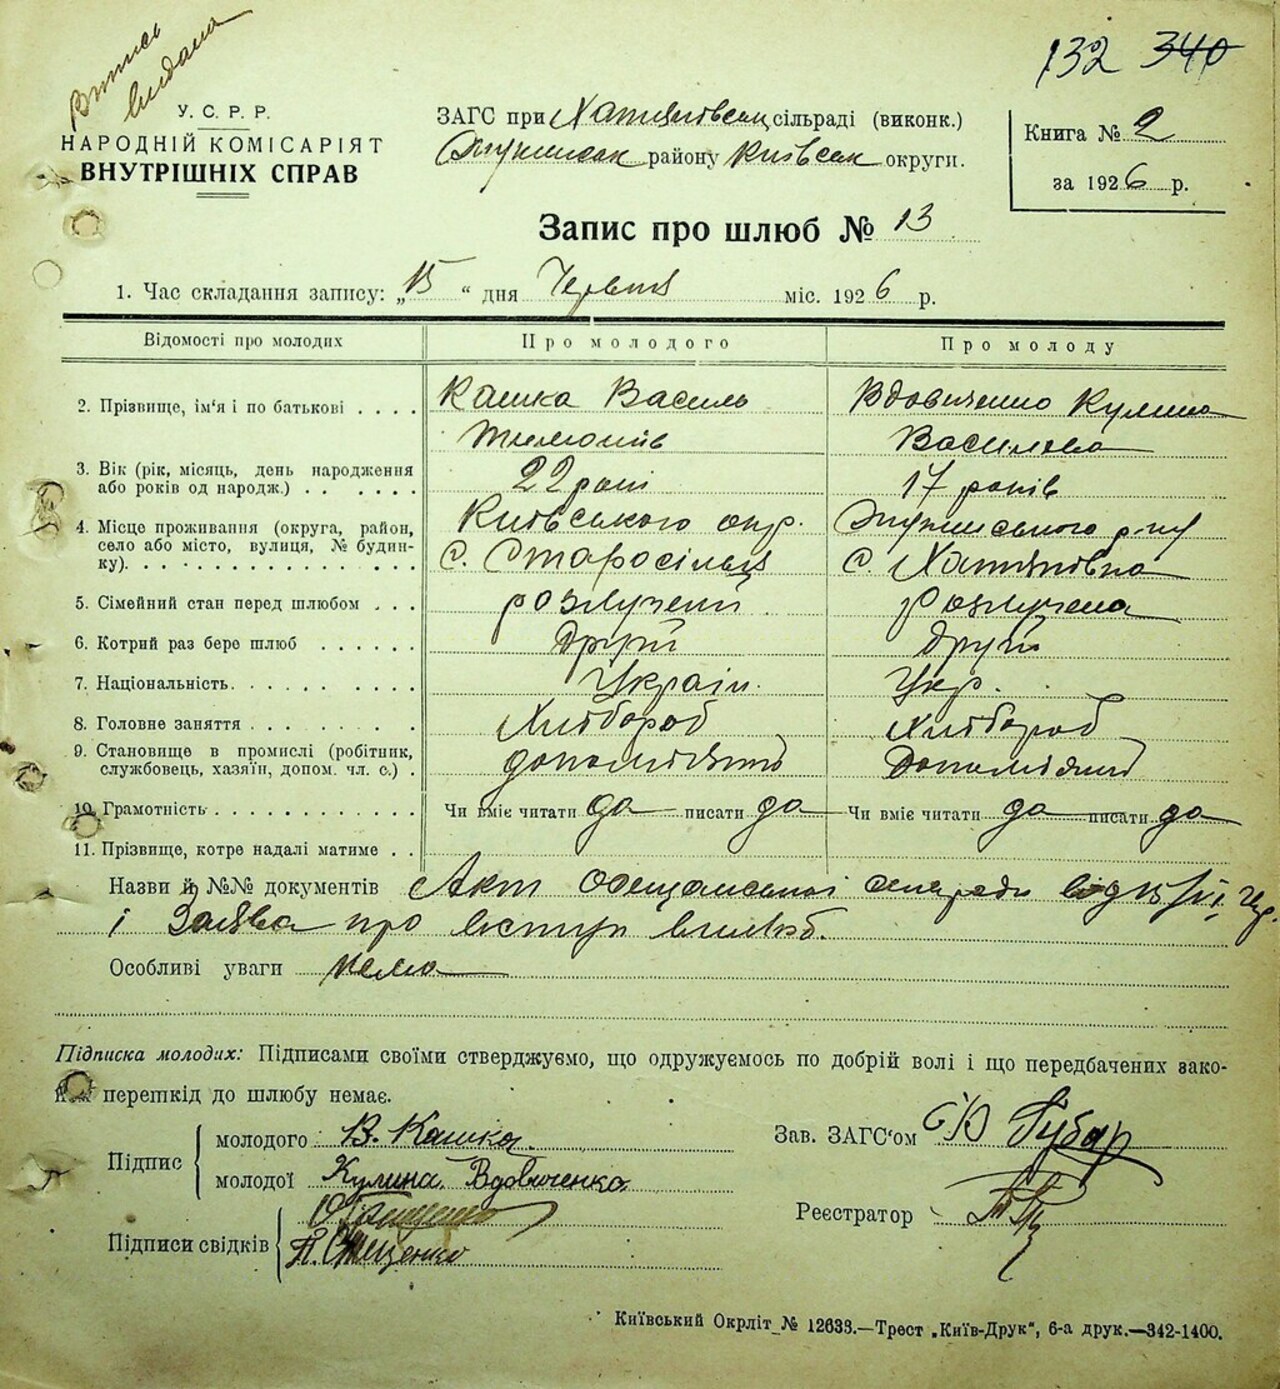 Випись
видана
132 340
У. С. Р. Р.
НАРОДНІЙ КОМІСАРІЯТ
ВНУТРІШНІХ СПРАВ
ЗАГС при сільраді (виконк.)
району Київськ округи.
Книга № 2
за 1926 р.
Запис про шлюб № 13
1. Час складання запису: „15“ дня Червня міс. 1926 р.
Відомості про молодих
Про молодого
Про молоду
2. Прізвище, ім'я і по батькові . . . .
Кашка Василь
Тимошів
Вдовиченко Кулина
Василева
3. Вік (рік, місяць, день народження
або років од народж.) . . . . . .
22 рокі
17 років
4. Місце проживання (округа, район,
село або місто, вулиця, № будин-
ку). . . . . . . . . . . . . . .
Київського окр.
с. Старосільця
району
с. Хатянівка
5. Сімейний стан перед шлюбом . . .
розлучений
розлучена
6. Котрий раз бере шлюб . . . . . .
Другий
Другий
7. Національність. . . . . . . . . .
Україн.
Укр.
8. Головне заняття . . . . . . . . .
Хлібороб
Хлібороб
9. Становище в промислі (робітник,
службовець, хазяїн, допом. чл. с.) .
10. Грамотність . . . . . . . . . . . .
Чи вміє читати да писати да
Чи вміє читати да писати да
11. Прізвище, котре надалі матиме . .
Назви й №№ документів Акт від 15/VI
і Заява про вступ в шлюб.
Особливі уваги нема
Підписка молодих: Підписами своїми стверджуємо, що одружуємось по добрій волі і що передбачених зако-
перешкід до шлюбу немає.
Підпис
молодого В. Кашка.
молодої Кулина Вдовиченко
Підписи свідків
Зав. ЗАГС'ом Губар
Реєстратор
Київський Окрліт № 12633.—Трест „Київ-Друк“, 6-а друк.—342-1400.